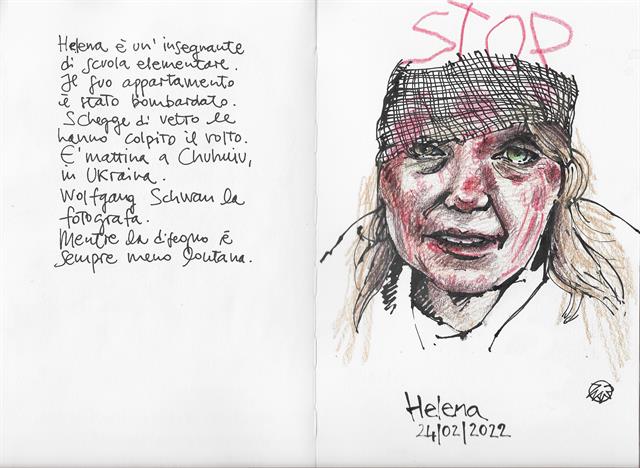 Helena è un' insegnante
di scuola elementare.
Il suo appartamento
è stato bombardato.
Schegge di vetro le
hanno colpito il volto.
E' mattina a Chuhuiv,
in Ukraina.
Wolfgang Schwan la
fotografa.
Mentre la disegno è
sempre meno lontana.
STOP
Helena
24/02/2022